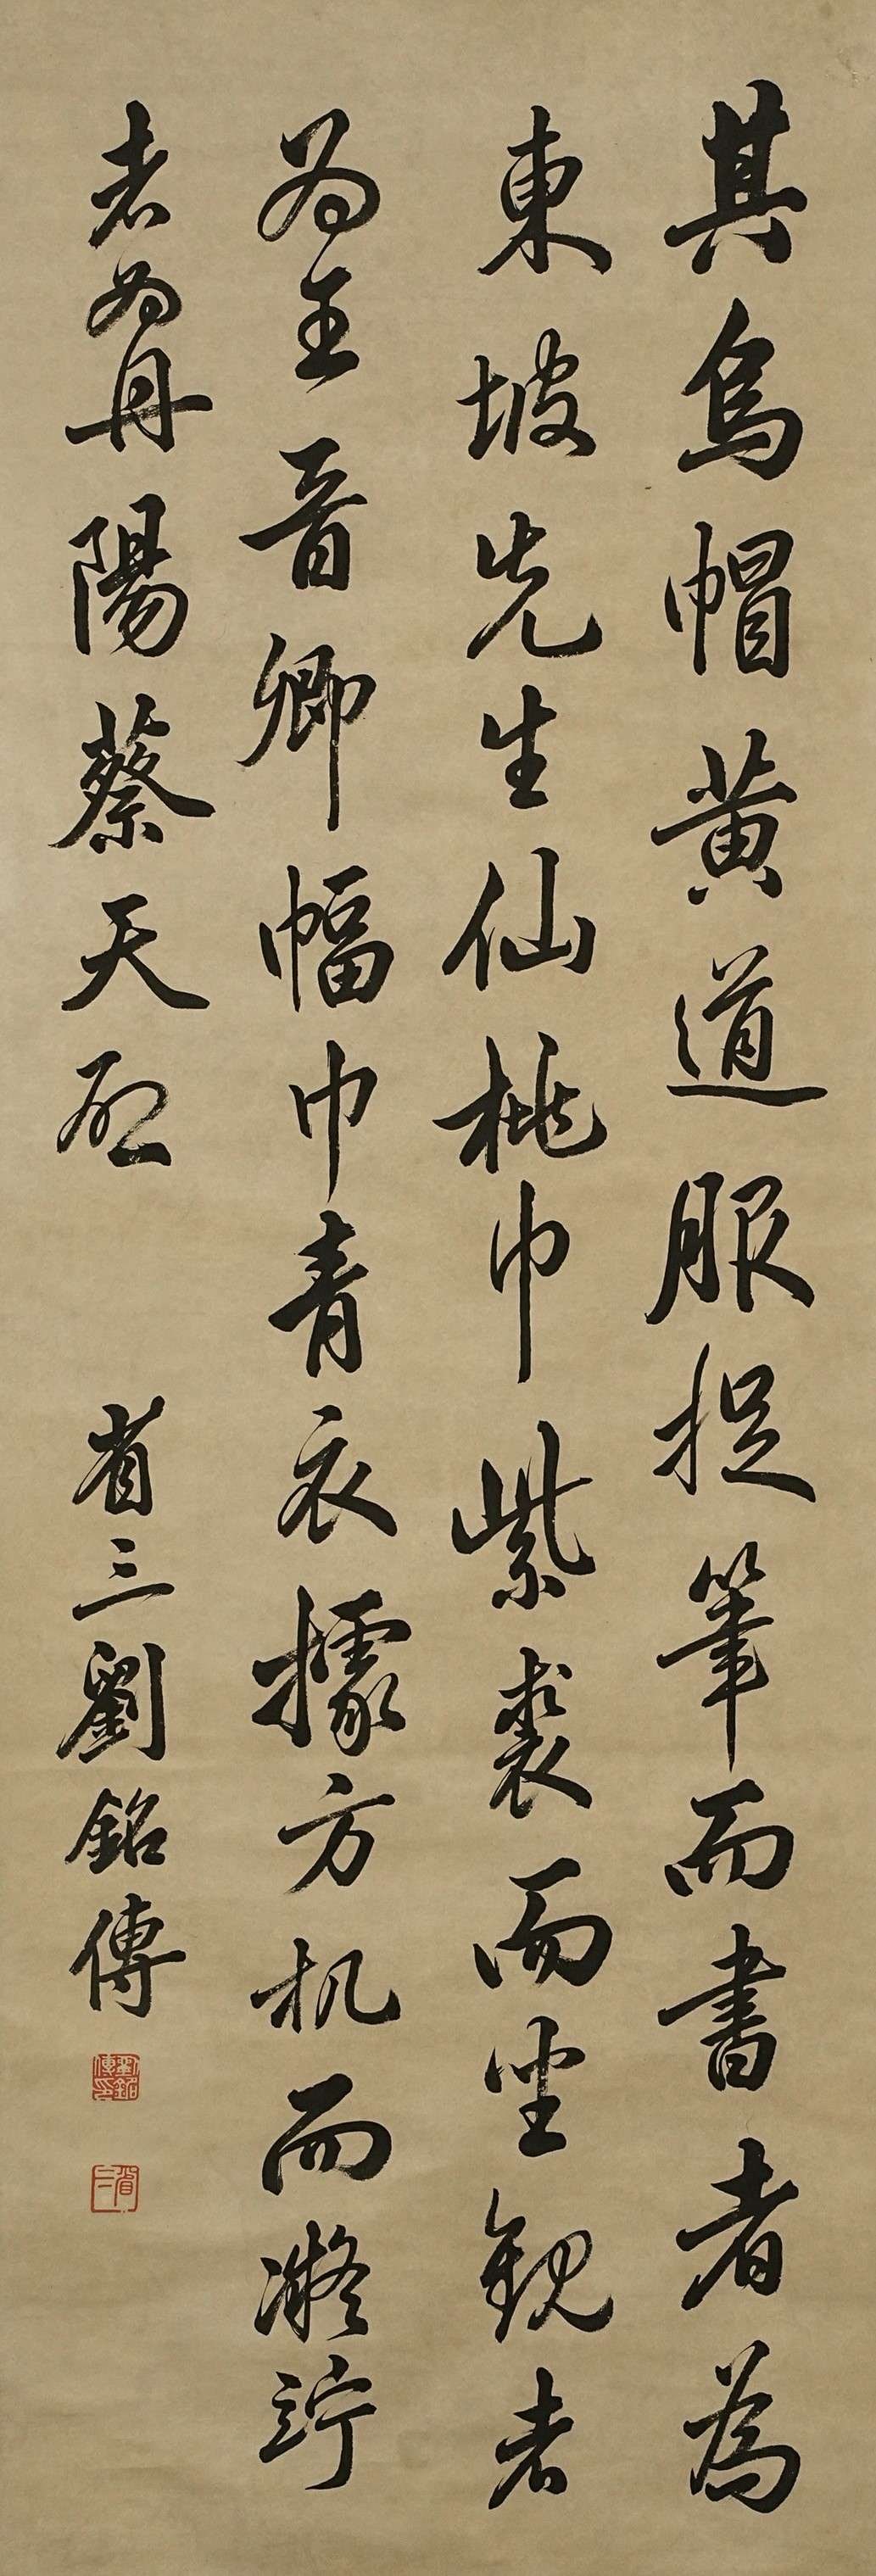 其烏帽黃道服捉筆而書者為
東坡先生仙桃巾紫裘而坐觀者
為王晉卿幅巾青衣據方机而凝竚
者為丹陽蔡天啟
省三劉銘傳
劉銘傳印
省三